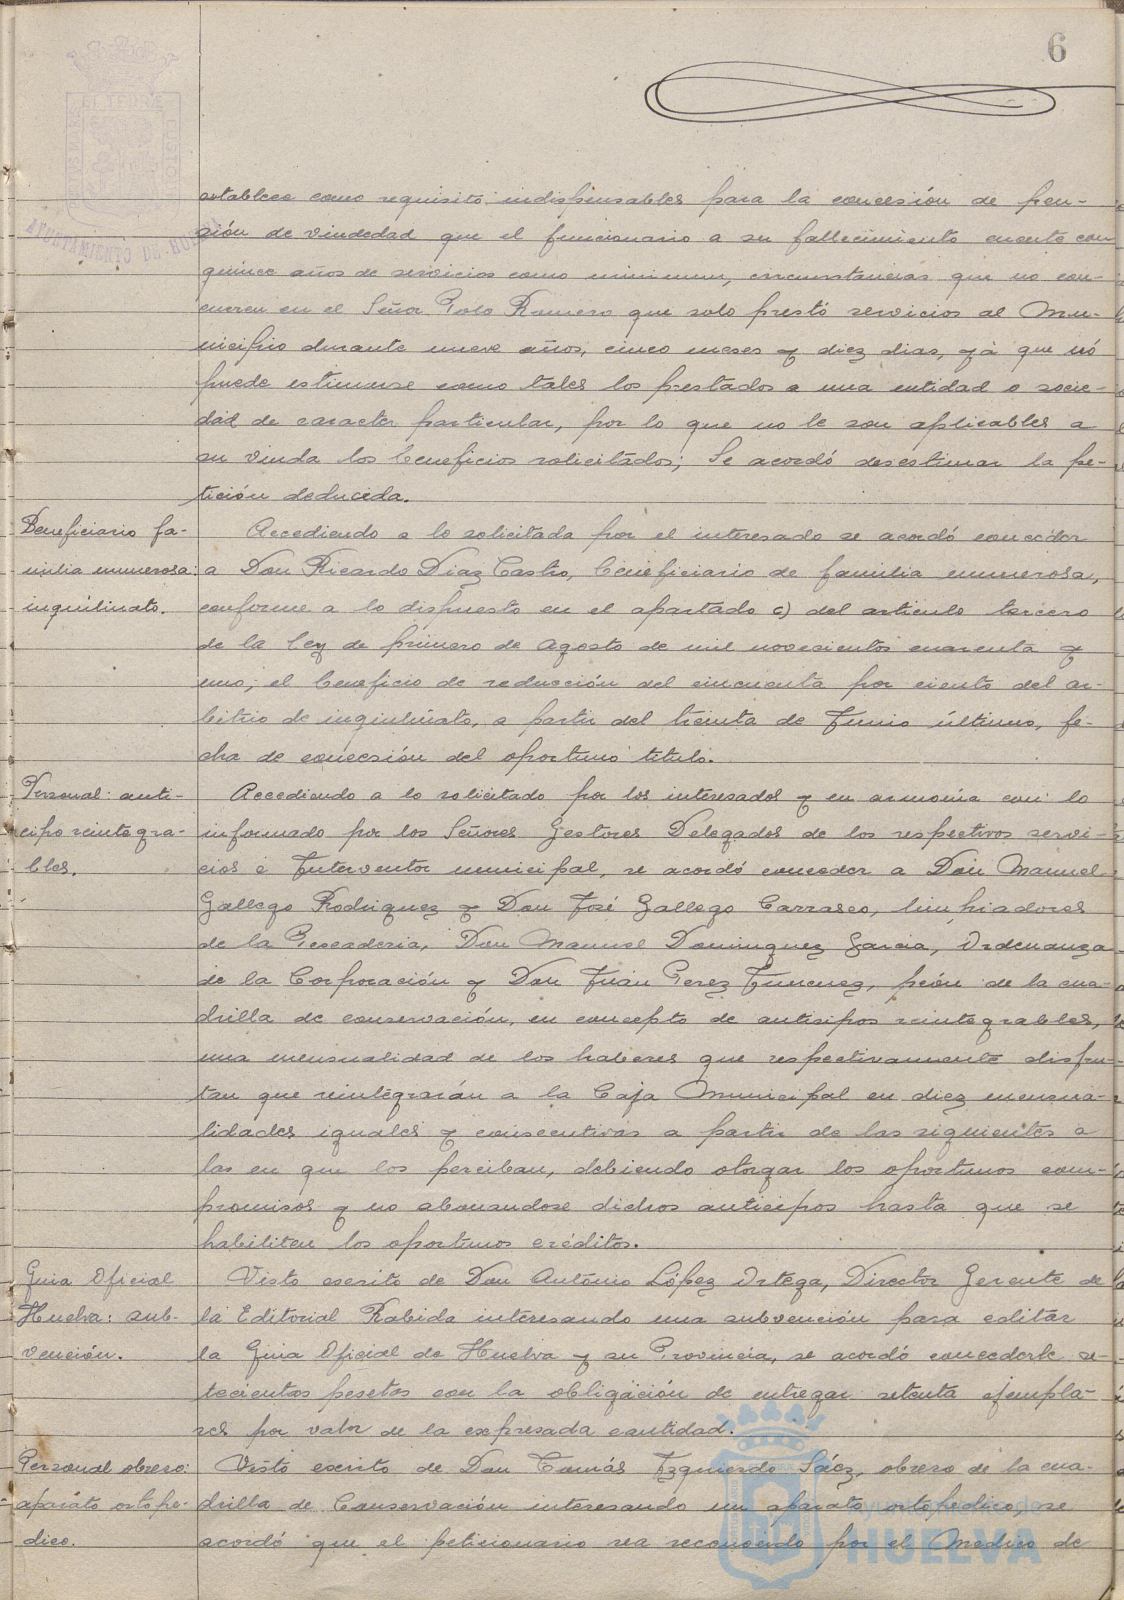 6
establece como requisito indispensables para la concesión de pen-
sión de viudedad que el funcionario a su fallecimiento cuente con
quince años de servicios como minimum, circunstancias que no con-
curren en el Señor Polo Romero que solo prestó servicios al Mu-
nicipio durante nueve años, cinco meses y diez dias, ya que no
puede estimarse como tales los prestados a una entidad o socie-
dad de caracter particular, por lo que no le son aplicables a
su viuda los beneficios solicitados; Se acordó desestimar la pe-
tición deducida.
Beneficiario fa-
milia numerosa:
inquilinato.
Accediendo a lo solicitada por el interesado se acordó conceder
a Don Ricardo Diaz Castro, beneficiario de familia numerosa,
conforme a lo dispuesto en el apartado c) del articulo tercero
de la ley de primero de Agosto de mil novecientos cuarenta y
uno, el beneficio de reducción del cincuenta por ciento del ar-
bitrio de inquilinato, a partir del treinta de Junio último, fe-
cha de concesión del oportuno titulo.
Personal: anti-
cipo reintegra-
bles.
Accediendo a lo solicitado por los interesados y en armonia con lo
informado por los Señores Gestores Delegados de los respectivos servi-
cios e Interventor municipal, se acordó conceder a Don Manuel
Gallego Rodriguez y Don José Gallego Carrasco, limpiadores
de la Pescaderia, Don Manuel Dominguez Garcia, Ordenanza
de la Corporación y Don Juan Perez Jimenez, peón de la cua-
drilla de conservación, en concepto de anticipos reintegrables,
una mensualidad de los haberes que respectivamente disfru-
tan que reintegrarán a la Caja Municipal en diez mensua-
lidades iguales y consecutivas a partir de las siguientes a
las en que los perciban, debiendo otorgar los oportunos com-
promisos y no abonandose dichos anticipos hasta que se
habiliten los oportunos créditos.
Guia Oficial
Huelva: sub-
vención.
Visto escrito de Don António López Ortega, Director Gerente de
la Editorial Rabida interesando una subvención para editar
la Guia Oficial de Huelva y su Provincia, se acordó concederle se-
tecientas pesetas con la obligación de entregar setenta ejempla-
res por valor de la expresada cantidad.
Personal obrero:
aparato ortope-
dico.
Visto escrito de Don Tomás Izquierdo Sáez, obrero de la cua-
drilla de Conservación interesando un aparato ortopedico, se
acordó que el peticionario sea reconocido por el Medico de
AYUNTAMIENTO DE HUELVA
Ayuntamiento de
HUELVA